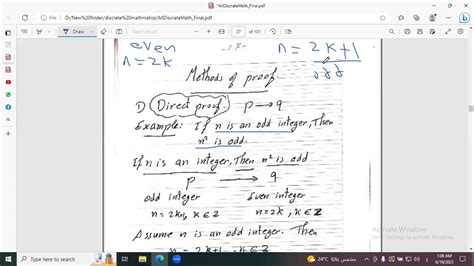 "AllDiscreteMath_Final.pdf
D:/New%20folder/discrete%20mathmatics/AllDiscreteMath_Final.pdf
37 of 101
even
n=2k
n=2k+1
odd
Methods of proof
1) Direct proof: p → q
Example: If n is an odd integer, Then
n² is odd.
If n is an integer, Then n² is odd
p → q
odd integer Even integer
n=2k+1, k∈Z n=2k, k∈Z
Assume n is an odd integer. Then
n = 2k+1, k∈Z
Activate Windows
Go to Settings to activate Windows.
Type here to search
24°C
1:08 AM
4/19/2023